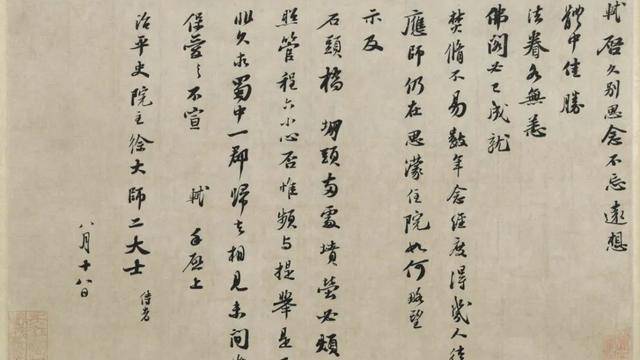 軾啓久別思念不忘遠想
體中佳勝
法眷各無恙
佛閣必已成就
焚脩不易數年念經度得幾人徒
應師仍在思濛住院如何略望
示及
石頭橋堋頭兩處墳塋必煩
照管程六小心否惟頻与提舉是
非久求蜀中一郡歸去相見未間
保愛之不宣 軾手啓上
治平史院主徐大師二大士 侍者
八月十八日